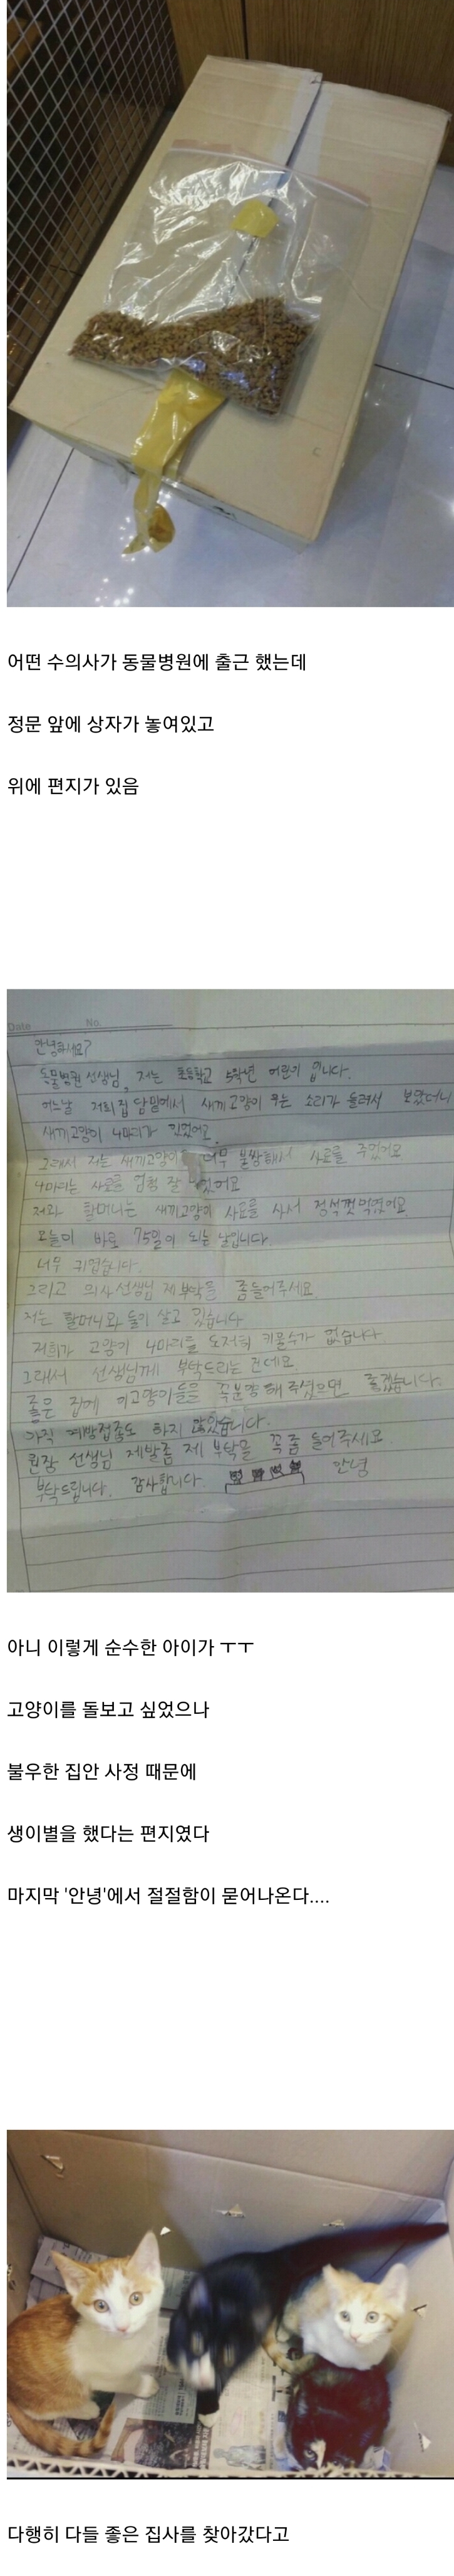 어떤 수의사가 동물병원에 출근 했는데
정문 앞에 상자가 놓여있고
위에 편지가 있음
Date No.
안녕하세요?
동물병원 선생님, 저는 초등학교 5학년 어린이 입니다.
어느날 저희 집 담밑에서 새끼고양이 우는 소리가 들려서 보았더니
새끼고양이 4마리가 있었어요.
그래서 저는 새끼고양이 너무 불쌍해서 사료를 주었어요
4마리는 사료를 엄청 잘 먹었어요
저와 할머니는 새끼고양이 사료를 사서 정석껏 먹였어요.
오늘이 바로 75일이 되는 날입니다.
너무 귀엽습니다.
그리고 의사선생님 제부탁을 좀들어주세요
저는 할머니와 둘이 살고 있습니다
저희가 고양이 4마리를 도저히 키울수가 없습니다.
그래서 선생님께 부탁드리는 건데요.
좋은 집에 이고양이들을 꼭분양해 주셨으면 좋겠습니다.
아직 예방접종도 하지 않았습니다.
원장 선생님 제발좀 제 부탁을 꼭좀 들어주세요
부탁드립니다. 감사합니다. 안녕
아니 이렇게 순수한 아이가 ㅜㅜ
고양이를 돌보고 싶었으나
불우한 집안 사정 때문에
생이별을 했다는 편지였다
마지막 '안녕'에서 절절함이 묻어나온다....
다행히 다들 좋은 집사를 찾아갔다고